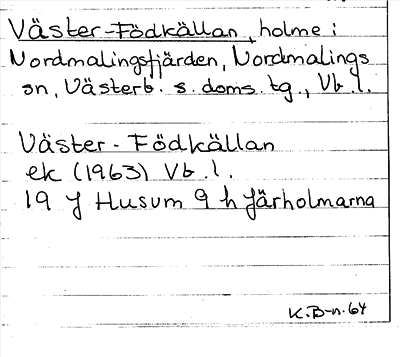 Väster-Födkällan, holme i
Nordmalingsfjärden, Nordmalings
sn, Västerb. s. doms. tg., Vb. l.
Väster-Födkällan
ek (1963) Vb. l.
19 J Husum 9 h Järholmarna
K. B-n. 64